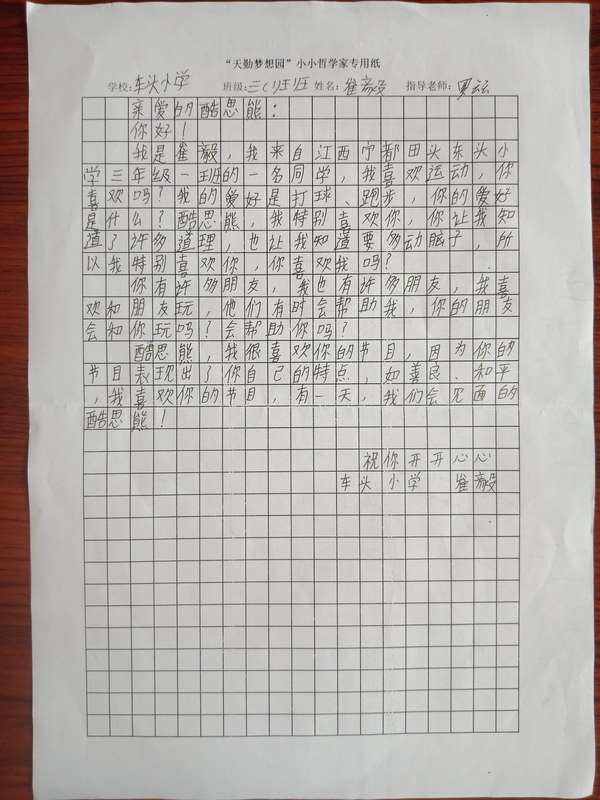 “天勤梦想园”小小哲学家专用纸
学校:车头小学 班级:三(1)班班 姓名:崔毅 指导老师:罗云
亲爱的酷思熊：
你好！
我是崔毅，我来自江西宁都田头东头小
学三年级一班的一名同学，我喜欢运动，你
喜欢吗？我的爱好是打球、跑步，你的爱好
是什么？酷思熊，我特别喜欢你，你让我知
道了许多道理，也让我知道要多动脑子，所
以我特别喜欢你，你喜欢我吗？
你有许多朋友，我也有许多朋友，我喜
欢和朋友玩，他们有时会帮助我，你的朋友
会和你玩吗？会帮助你吗？
酷思熊，我很喜欢你的节目，因为你的
节目表现出了你自己的特点，如善良、和平
，我喜欢你的节目，有一天，我们会见面的
酷思熊！
祝你开开心心
车头小学 崔毅